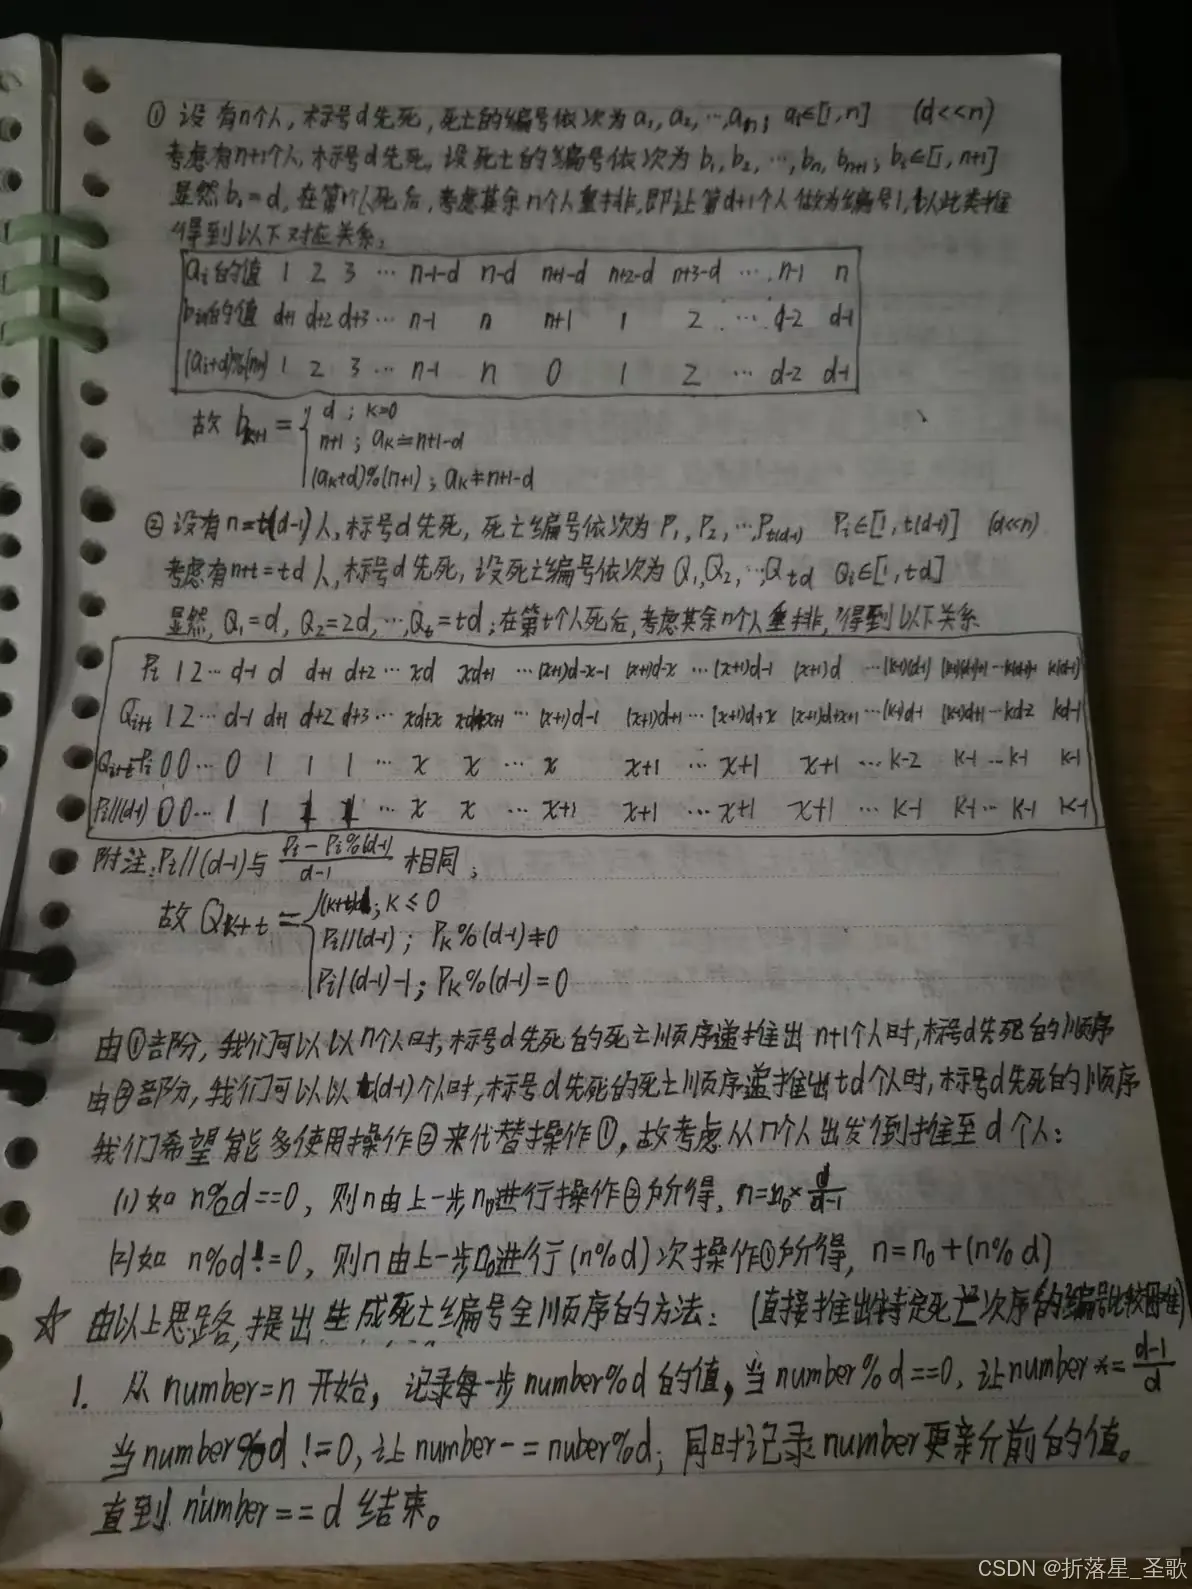 ① 设有n个人,标号d先死,死亡的编号依次为a₁,a₂,…,aₙ; aᵢ∈[1,n] (d<<n)
考虑有n+1个人,标号d先死,设死亡的编号依次为b₁,b₂,…,bₙ,bₙ₊₁; bᵢ∈[1,n+1]
显然b₁=d,在第1个人死后,考虑其余n个人重排,即让第d+1个人做为编号1,以此类推
得到以下对应关系:
aᵢ的值 1 2 3 … n-1-d n-d n+1-d n+2-d n+3-d … n-1 n
bᵢ₊₁的值 d+1 d+2 d+3 … n-1 n n+1 1 2 … d-2 d-1
(aᵢ+d)%(n+1) 1 2 3 … n-1 n 0 1 2 … d-2 d-1
故 bₖ₊₁= { d ; k=0
n+1 ; aₖ=n+1-d
(aₖ+d)%(n+1) ; aₖ≠n+1-d
② 设有n=t(d-1)人,标号d先死,死亡编号依次为P₁,P₂,…,Pt(d-1) Pᵢ∈[1,t(d-1)] (d<<n)
考虑有n+t=td人,标号d先死,设死亡编号依次为Q₁,Q₂,…,Qtd Qᵢ∈[1,td]
显然,Q₁=d,Q₂=2d,…,Qt=td;在第t个人死后,考虑其余n个人重排,得到以下关系
Pᵢ 1 2 … d-1 d d+1 d+2 … xd xd+1 … (x+1)d-x-1 (x+1)d-x … (x+1)d-1 (x+1)d … (k-1)(d-1) (k-1)(d-1)+1 … k(d-1)-1 k(d-1)
Qᵢ₊t 1 2 … d-1 d+1 d+2 d+3 … xd+x xd+x+1 … (x+1)d-1 (x+1)d+1 … (x+1)d+x (x+1)d+x+1 … (k-1)d-1 (k-1)d+1 … kd-2 kd-1
Qᵢ₊t-Pᵢ 0 0 … 0 1 1 1 … x x … x x+1 … x+1 x+1 … k-2 k-1 … k-1 k-1
Pᵢ//(d-1) 0 0 … 1 1 1 1 … x x … x+1 x+1 … x+1 x+1 … k-1 k-1 … k-1 k-1
附注:Pᵢ//(d-1)与 (Pᵢ-Pᵢ%(d-1))/(d-1) 相同;
故 Qₖ₊t= { (k+t)d ; k≤0
Pᵢ//(d-1) ; Pₖ%(d-1)≠0
Pᵢ//(d-1)-1 ; Pₖ%(d-1)=0
由①部分,我们可以以n个人时,标号d先死的死亡顺序递推出n+1个人时,标号d先死的顺序
由②部分,我们可以以t(d-1)个人时,标号d先死的死亡顺序递推出td个人时,标号d先死的顺序
我们希望能多使用操作②来代替操作①,故考虑从n个人出发倒推至d个人:
(1)如 n%d==0,则n由上一步n₀进行操作②所得,n=n₀×d/(d-1)
(2)如 n%d!=0,则n由上一步n₀进行(n%d)次操作①所得,n=n₀+(n%d)
☆ 由以上思路,提出生成死亡编号全顺序的方法:(直接推出特定死亡次序的编号比较困难)
1. 从number=n开始,记录每一步number%d的值,当number%d==0,让number*=(d-1)/d
当number%d!=0,让number-=nuber%d;同时记录number更新前的值。
直到number==d结束。
CSDN @折落星_圣歌